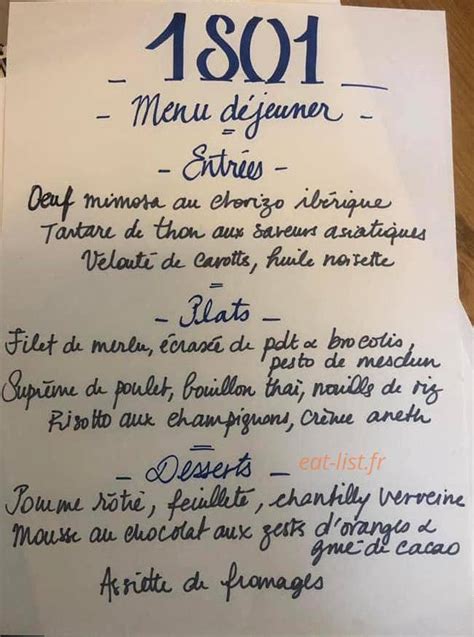 1801
- Menu déjeuner -
- Entrées -
Oeuf mimosa au chorizo ibérique
Tartare de thon aux saveurs asiatiques
Velouté de carotts, huile noisette
- Plats -
Filet de merlu, écrasée de pdt & brocolis,
pesto de mesclun
Suprême de poulet, bouillon thaï, nouills de riz
Risotto aux champignons, crème aneth
- Desserts -
eat-list.fr
Pomme rôtie, feuilleté, chantilly verveine
Mousse au chocolat aux zests d'oranges &
grué de cacao
Assiette de fromages